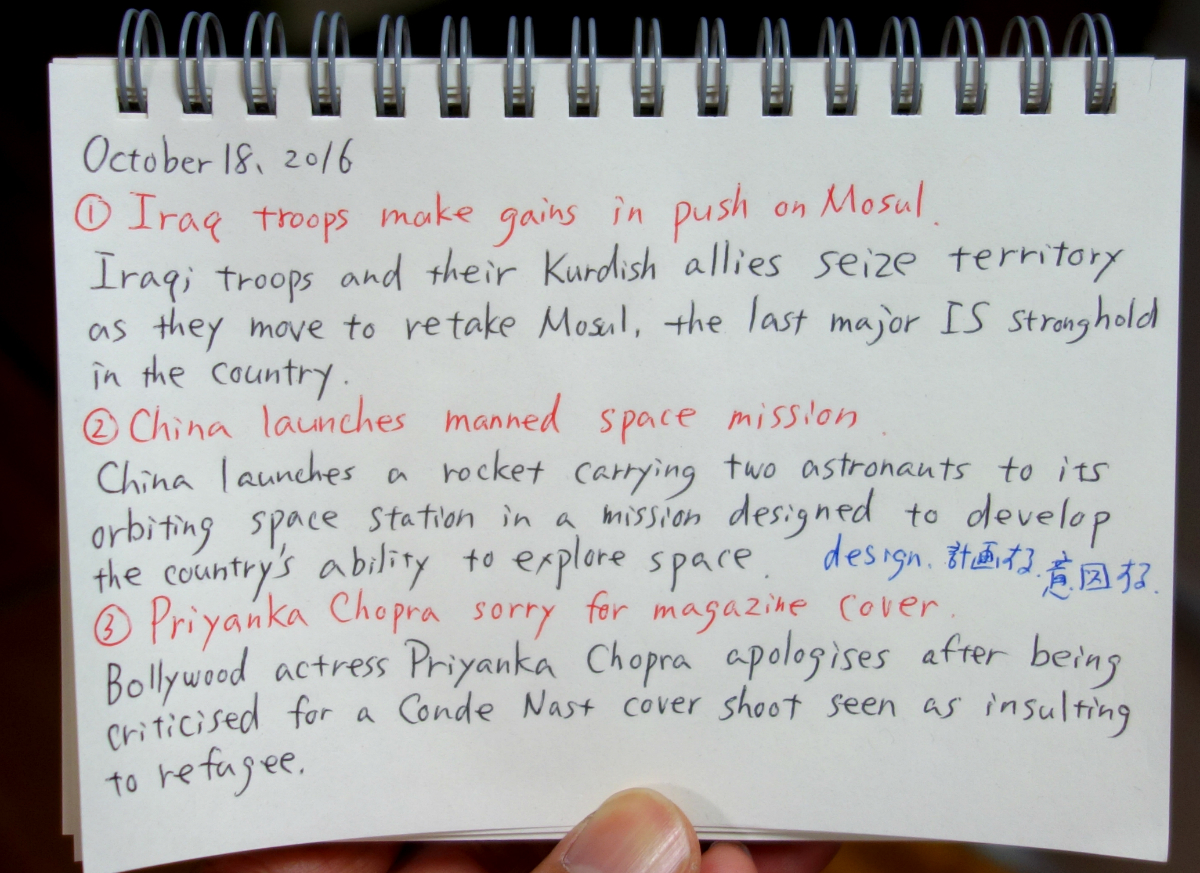 October 18、2016
① Iraq troops make gains in push on Mosul.
Iraqi troops and their Kurdish allies seize territory
as they move to retake Mosul, the last major IS stronghold
in the country.
② China launches manned space mission.
China launches a rocket carrying two astronauts to its
orbiting space station in a mission designed to develop
the country's ability to explore space. design. 計画する. 意図する.
③ Priyanka Chopra sorry for magazine cover.
Bollywood actress Priyanka Chopra apologises after being
criticised for a Conde Nast cover shoot seen as insulting
to refugee.